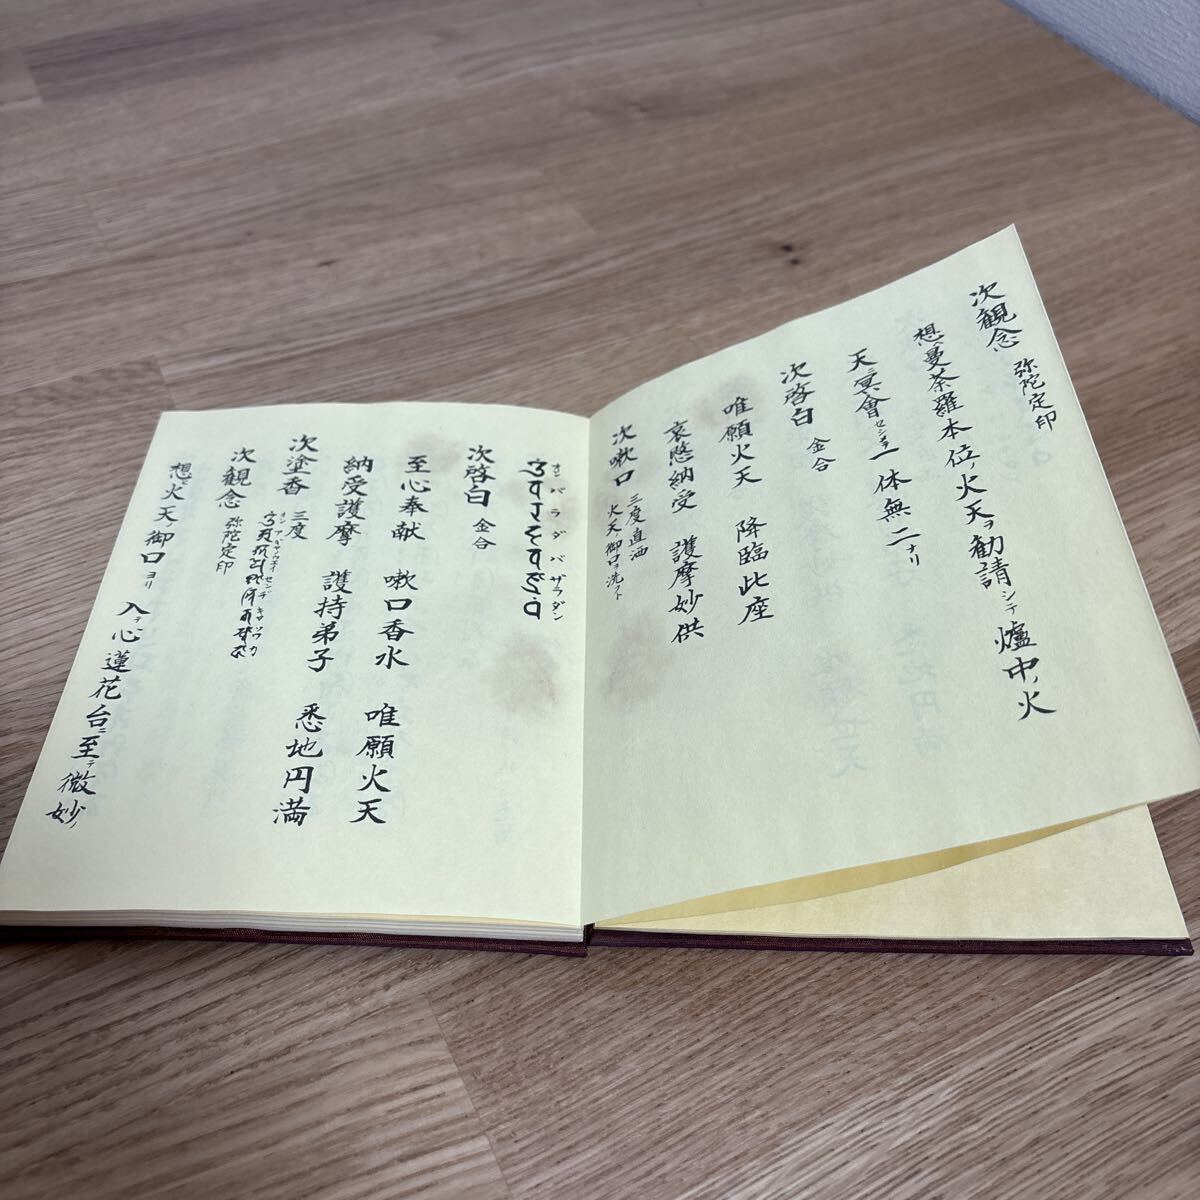 次観念 弥陀定印
想ヘ曼荼羅本位ノ火天ヲ勧請シテ爐中ノ火
天ニ冥會セシメテ一体無二ナリ
次啓白 金合
唯願火天 降臨此座
哀愍納受 護摩妙供
次嗽口 三度直洒
火天御口ヲ洗フト
オン バ ラ ダ バ ザラ ダン
次啓白 金合
至心奉献 嗽口香水 唯願火天
納受護摩 護持弟子 悉地円満
次塗香 三度
次観念 弥陀定印
想ヘ火天御口ヨリ入テ心蓮花台ニ至テ微妙ノ